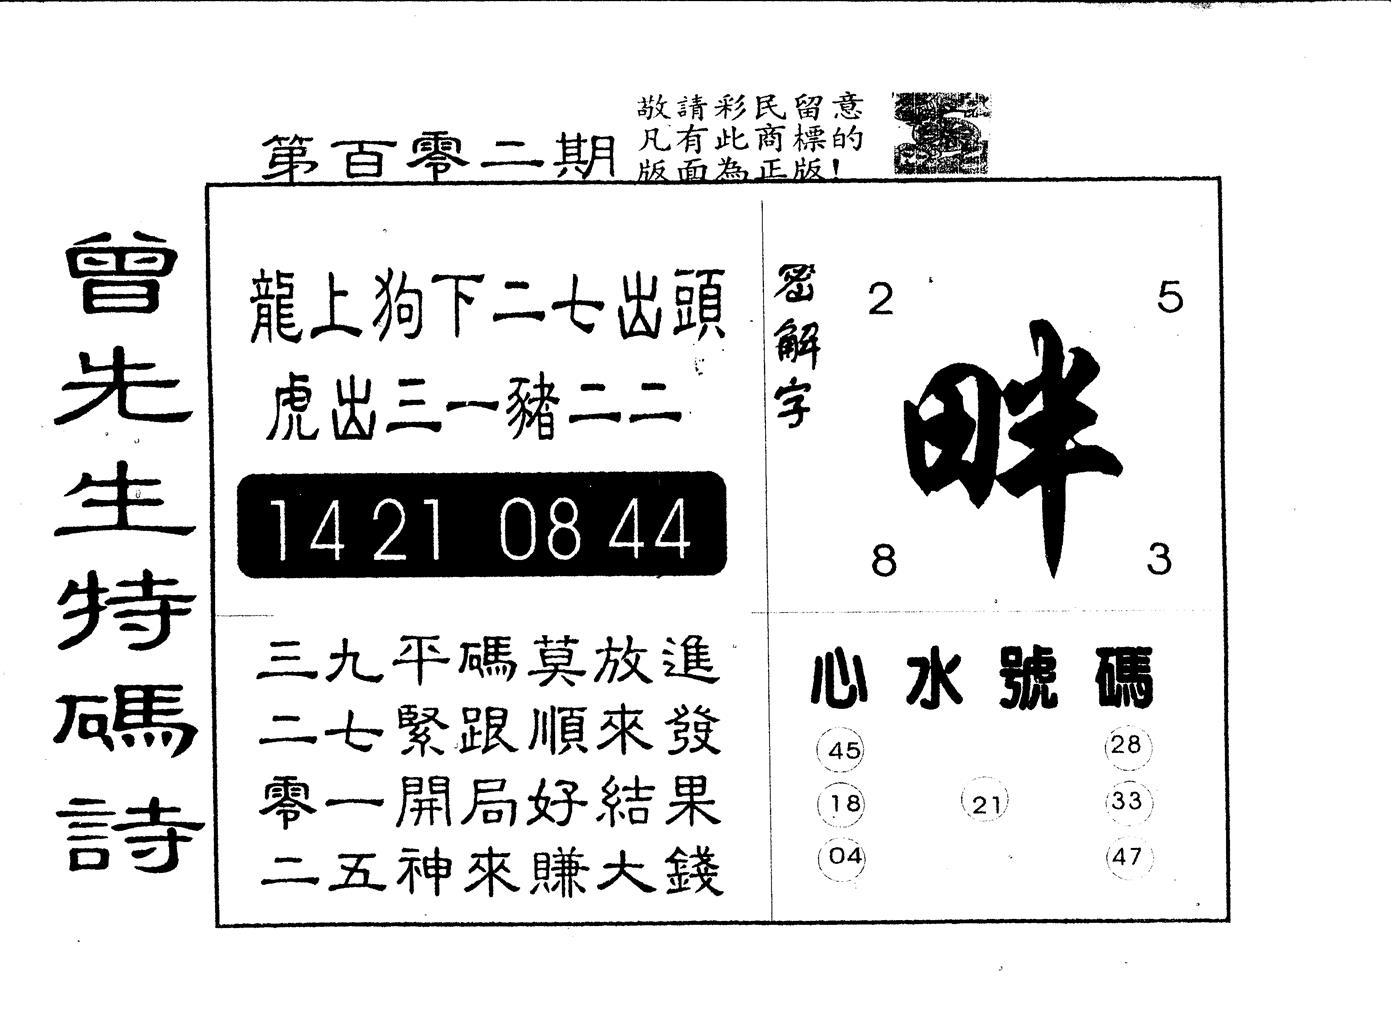 敬請彩民留意
凡有此商標的
版面為正版!
第百零二期
曾先生特碼詩
龍上狗下二七出頭
虎出三一豬二二
14 21 08 44
三九平碼莫放進
二七緊跟順來發
零一開局好結果
二五神來賺大錢
密解字
2 5
畔
8 3
心水號碼
45 28
18 21 33
04 47